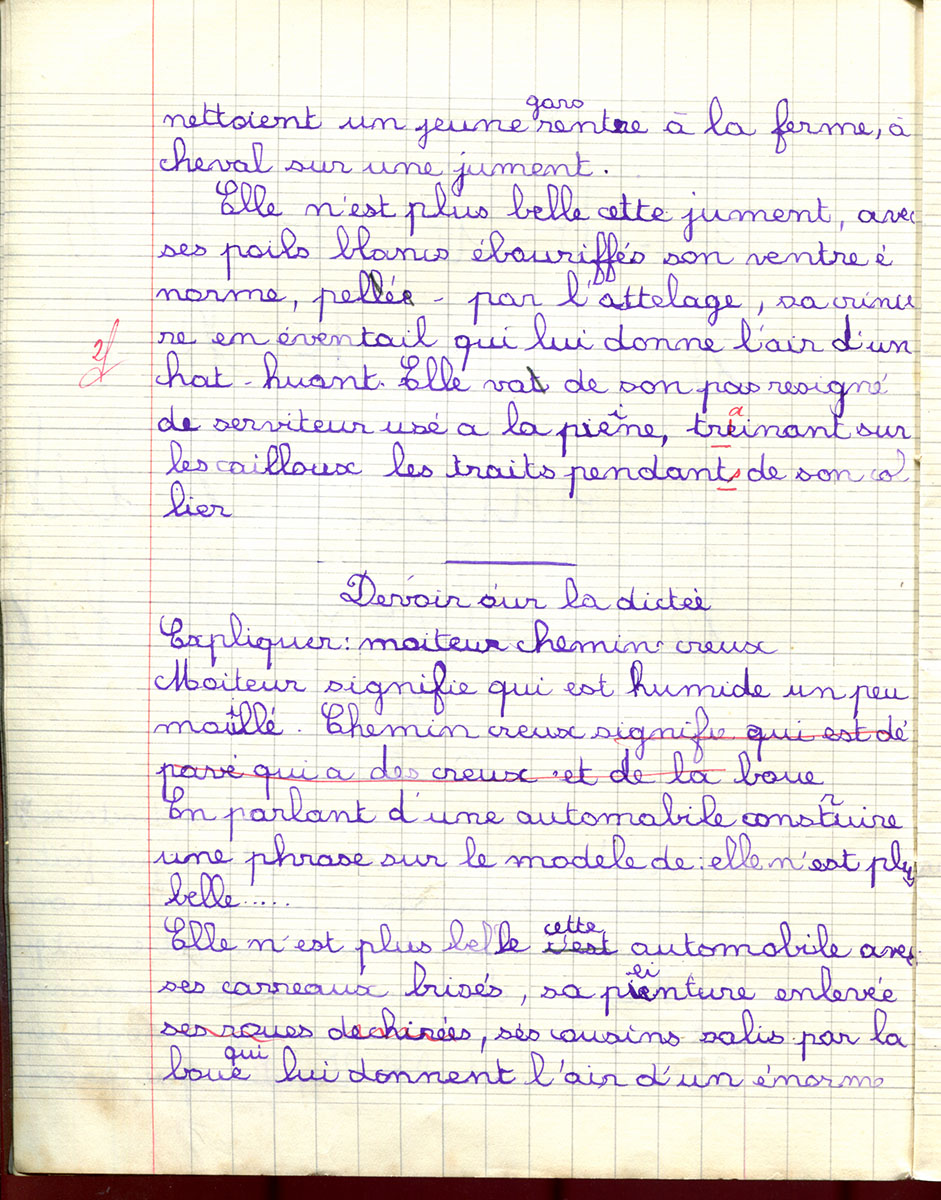 gars
nettoient un jeune rentre à la ferme, à
cheval sur une jument.
Elle n'est plus belle cette jument, avec
ses poils blancs ébouriffés son ventre é
norme, pellée - par l'attelage, sa criniè
re en éventail qui lui donne l'air d'un
2f
chat-huant. Elle va de son pas resigné
de serviteur usé a la pieine, treinant sur
a
les cailloux les traits pendants de son col
lier
Devoir sur la dictée
Expliquer: moiteur chemin creux
Moiteur signifie qui est humide un peu
mouillé. Chemin creux signifie qui est dé
pavé qui a des creux et de la boue
En parlant d'une automobile construire
une phrase sur le modele de: elle n'est plus
belle.....
cette
Elle n'est plus belle c'est automobile avec
ses carreaux brisés, sa peinture enlevée
ses roues dechirées, ses cousins salis par la
qui
boue lui donnent l'air d'un énorme